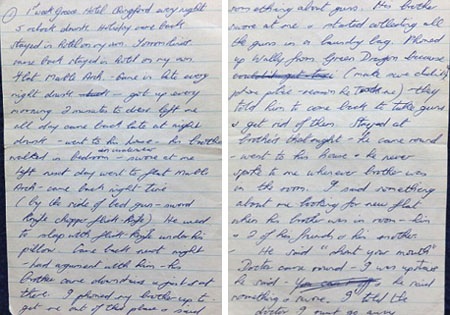 1st week Grove Hotel Chingford every night
5 o'clock drunk Holiday came back
stayed in Hotel on my own.
came back stayed in Hotel on my own
Flat Marble Arch. Came in late every
night drunk - got up every
morning 2 minutes to dress left me
all day came back late at night
drunk - went to his house - his brother
walked in bedroom - swore at me
left next day went to flat Marble
Arch - came back night
(by the side of bed gun - sword
Knife chopper flick Knife) He used
to sleep with flick Knife under his
pillow. Came back next night
- had argument with him - his
brother came downstairs - just sat
there. I phoned my brother up to
get me out of this place & said
something about guns. His brother
swore at me & started collecting all
the guns in a laundry bag. Phoned
up Wally from Green Dragon because
(make sure
phone police - reason he me) - they
told him to come back to take guns
& get rid of them. Stayed at
brothers that night - he came round
- went to his house & he never
spoke to me whenever brother was
in the room. I said something
about me looking for new flat
when his brother was in room - him
& 2 of his friends & his mother
- He said "shut your mouth"
Doctor came round - I was upstairs
he said - he said
something & swore. I told the
doctor I must go away